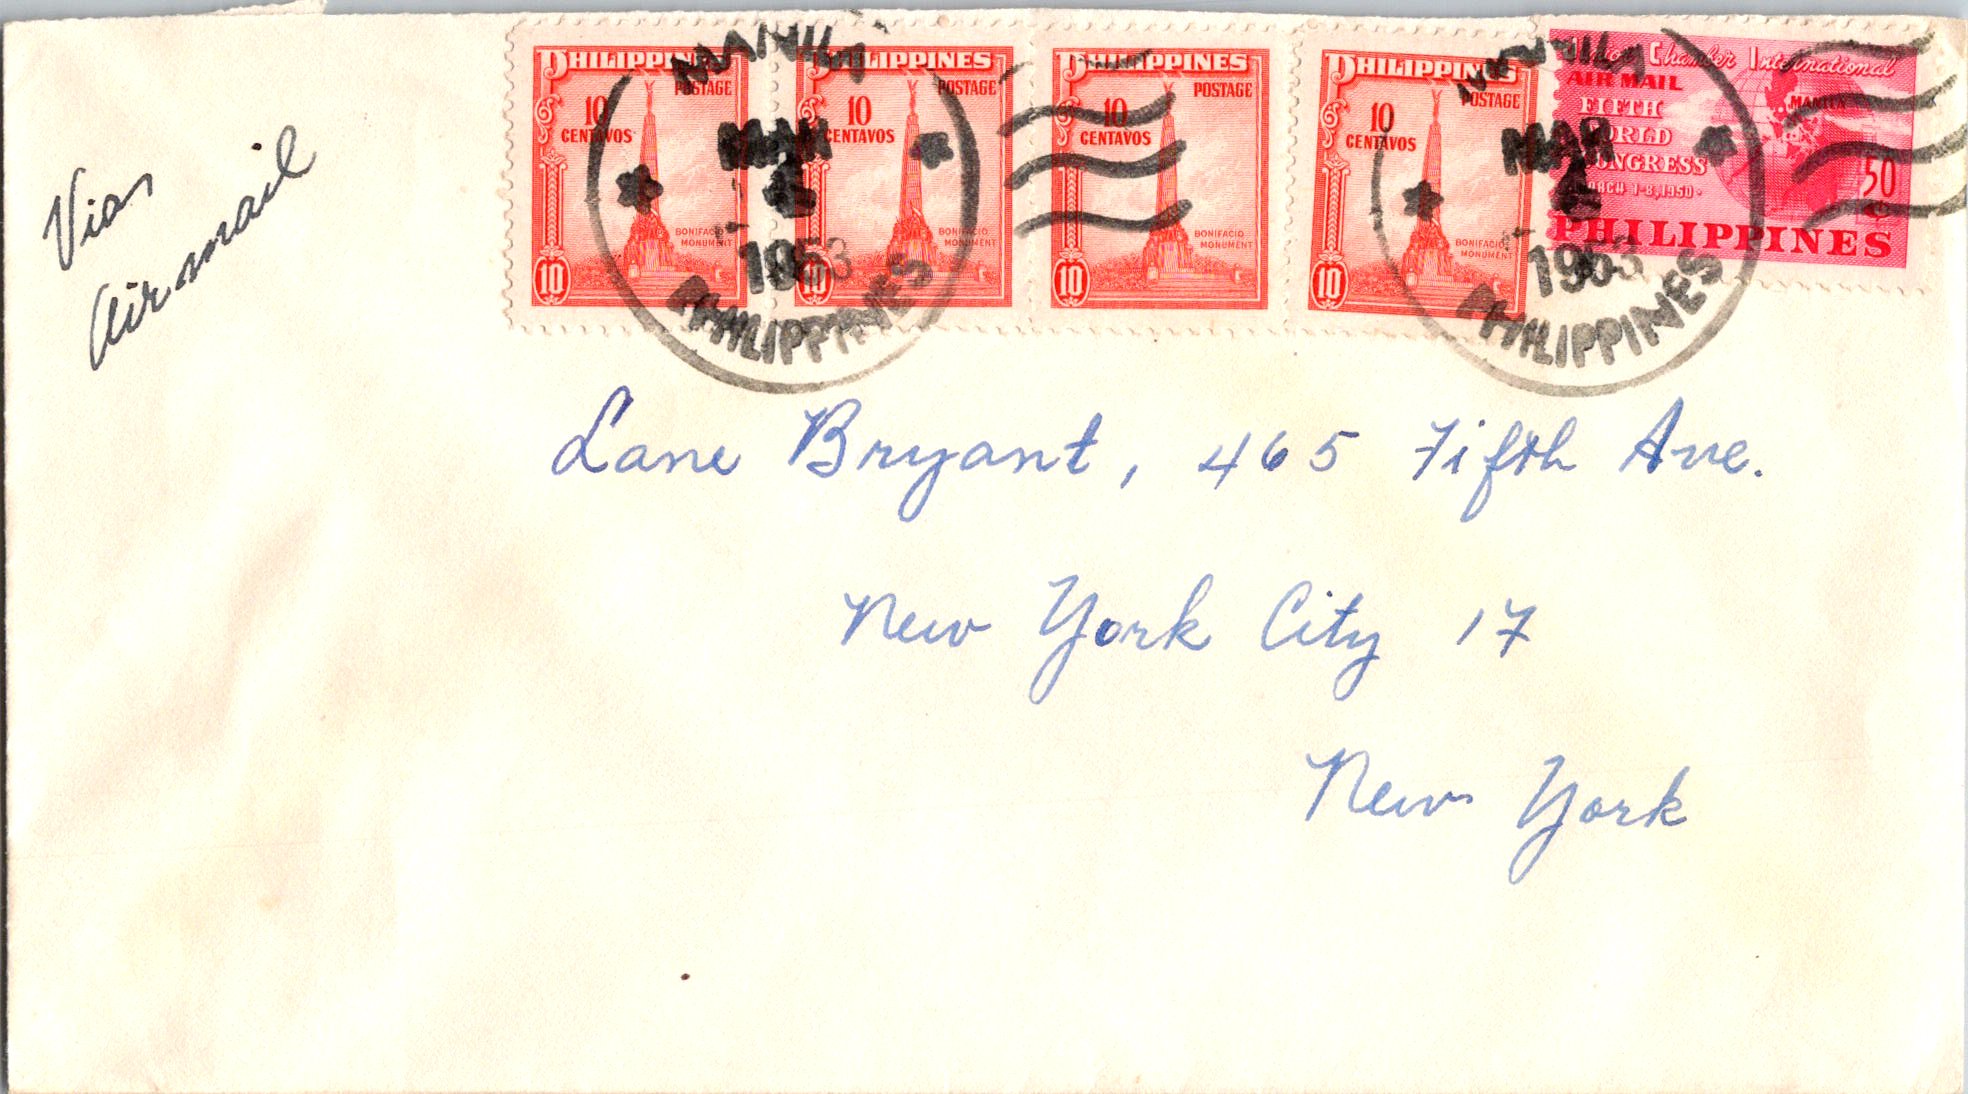 PHILIPPINES
POSTAGE
10
CENTAVOS
BONIFACIO
MONUMENT
10
PHILIPPINES
POSTAGE
10
CENTAVOS
BONIFACIO
MONUMENT
10
PHILIPPINES
POSTAGE
10
CENTAVOS
BONIFACIO
MONUMENT
10
PHILIPPINES
POSTAGE
10
CENTAVOS
BONIFACIO
MONUMENT
10
Junior Chamber International
AIR MAIL
FIFTH
WORLD
CONGRESS
MARCH 1-8, 1950
MANILA
50
PHILIPPINES
MANILA
MAR
1953
PHILIPPINES
MANILA
MAR
1953
PHILIPPINES
Via
Airmail
Lane Bryant, 465 Fifth Ave.
New York City 17
New York